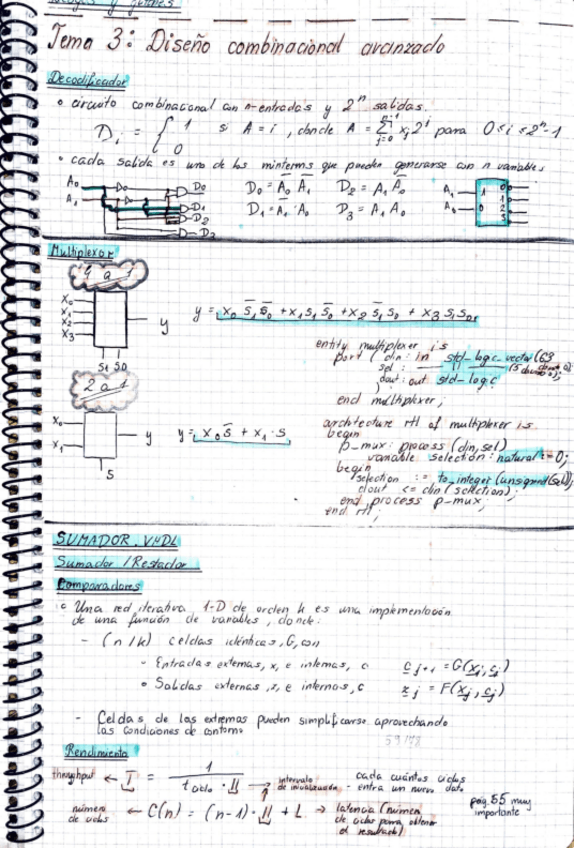 Tema 3: Diseño combinacional avanzado
Decodificador
• circuito combinacional con n-entradas y 2^n salidas.
D_i = { 1 si A = i, donde A = Σ_{j=0}^{n-1} x_j 2^j para 0 ≤ i ≤ 2^n-1
0
• cada salida es uno de los minterms que pueden generarse con n variables
A0 D0 D0 = A̅0 A̅1 D2 = A1 A̅0 A1 1 0
A1 D1 D1 = A̅1 · A0 D3 = A1 A0 A0 1
D2 2
D3 3
Multiplexor
4 a 1
X0
X1
X2
X3
y
S1 S0
y = x0 s̅1 s̅0 + x1 s1 s̅0 + x2 s̅1 s0 + x3 s1 s0
2 a 1
X0
X1
y
S
y = x0 s̅ + x1 · s
entity multiplexer is
port ( din: in std-logic-vector (63
sel :
dout: out std-logic
)
end multiplexer;
architecture rtl of multiplexer is
begin
p-mux: process (din, sel)
variable selection: natural := 0;
begin
selection := to_integer (unsigned(sel));
dout <= din (selection);
end process p-mux;
end rtl;
SUMADOR. VHDL
Sumador / Restador
Comparadores
• Una red iterativa 1-D de orden k es una implementación
de una función de variables, donde:
- (n/k) celdas idénticas, G, con
• Entradas externas, x, e internas, c c_{j+1} = G(x_j, c_j)
• Salidas externas, z, e internas, c z_j = F(x_j, c_j)
- Celdas de los extremos pueden simplificarse aprovechando
las condiciones de contorno
Rendimiento
throughput ← T = 1 / t_ciclo · II → intervalo de inicialización: cada cuántos ciclos entra un nuevo dato
número de ciclos ← C(n) = (n-1) · II + L → latencia (número de ciclos para obtener el resultado)
pág. 55 muy
importante